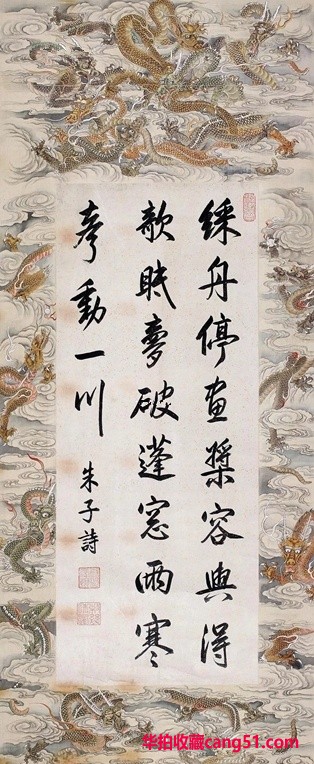 綵舟停畫槳容與得
欹眠夢破蓬窓雨寒
聲動一川
朱子詩
华拍收藏cang51.com